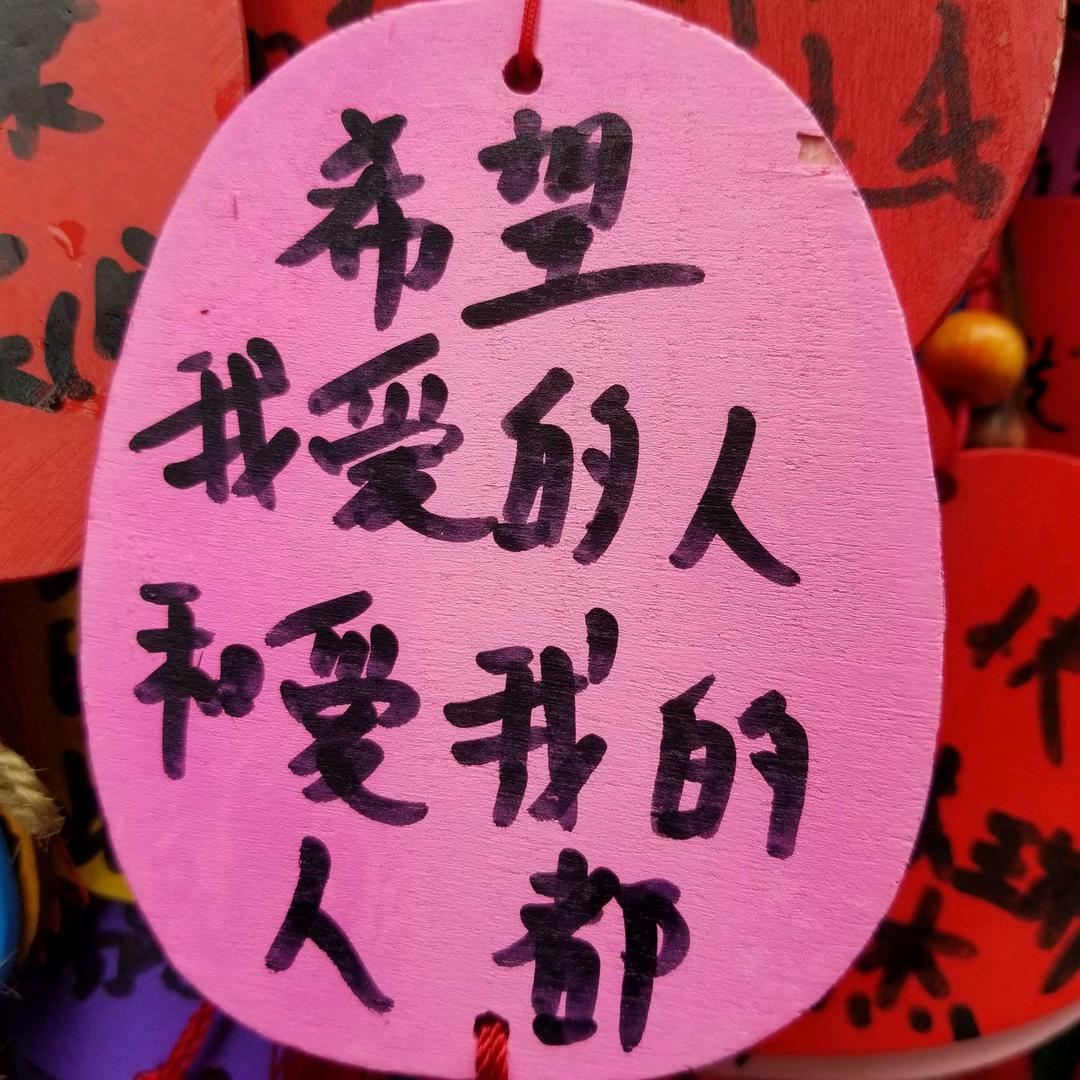 希望
我爱的人
和爱我的
人都